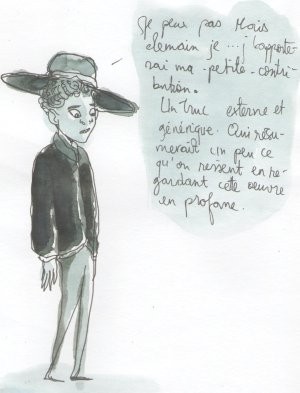 Je peux pas Mais
demain je ... j'apporte-
rai ma petite contri-
bution.
Un truc externe et
générique. Qui résu-
merait un peu ce
qu'on ressent en re-
gardant cette oeuvre
en profane.